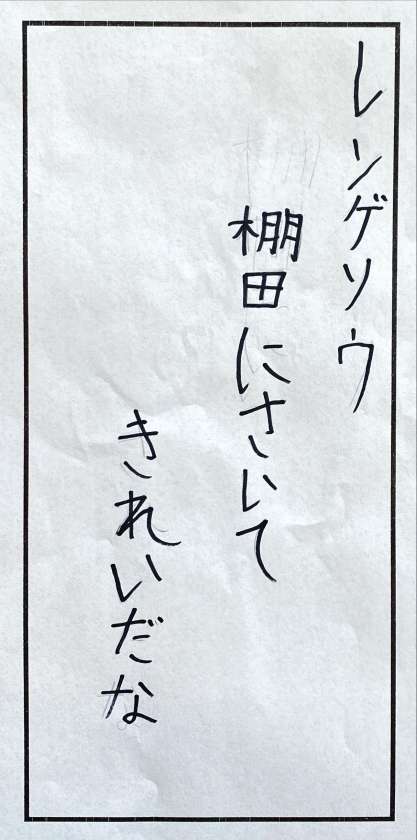 レンゲソウ
棚田にさいて
きれいだな